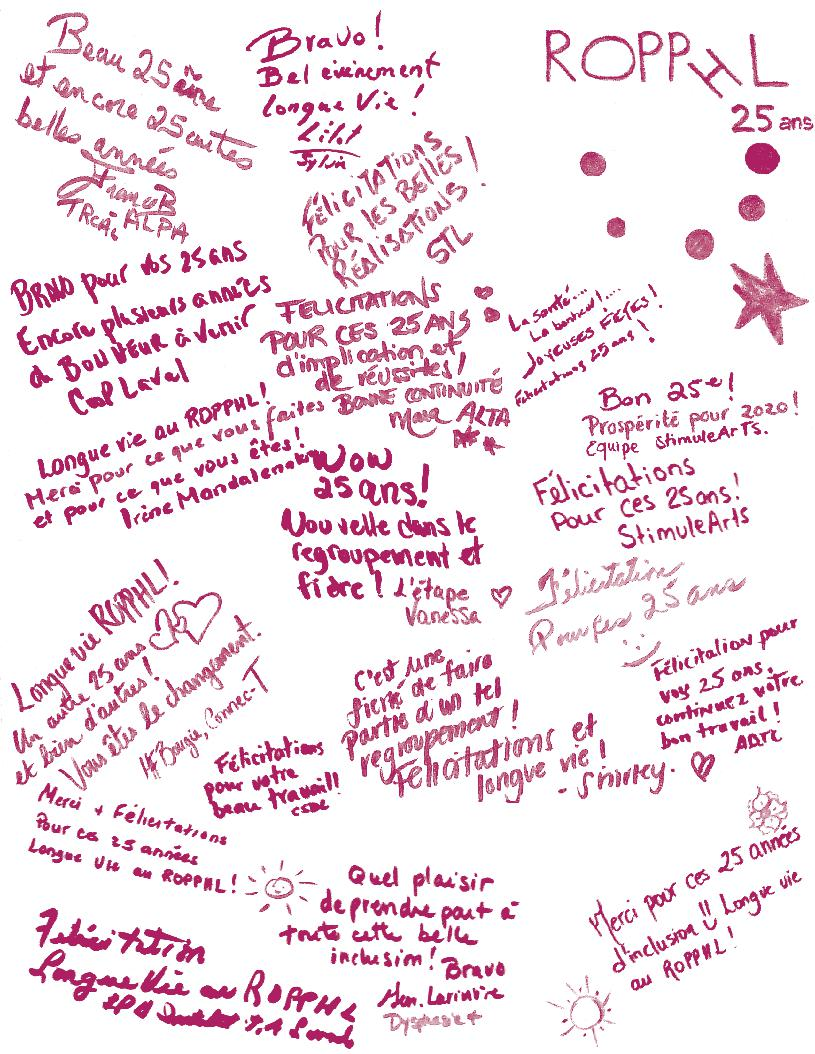 ROPPHL
25 ans
Beau 25ème
et encore 25 autres
belles années
ALPA
Bravo!
Bel événement
Longue Vie!
Sylvie
Félicitations
Pour les belles
Réalisations
STL
Bravo pour vos 25 ans
Encore plusieurs années
de BONHEUR à venir
Laval
FELICITATIONS
POUR CES 25 ANS
d'implication et
de réussites!
BONNE CONTINUITÉ
ALTA
La santé...
Le bonheur!...
JOYEUSES FÊTES!
Félicitations 25 ans!
Bon 25e!
Prospérité pour 2020!
Équipe StimuleArts.
Longue vie au ROPPHL!
Merci pour ce que vous faites
et pour ce que vous êtes!
Irène
Wow
25 ans!
Nouvelle dans le
regroupement et
fière! L'étape
Vanessa
Félicitations
Pour ces 25 ans!
StimuleArts
Félicitation
Pour ces 25 ans
Longue vie ROPPHL!
Un autre 25 ans
et bien d'autres!
Vous êtes le changement.
Connec-T
C'est une
fierté de faire
partie d'un tel
regroupement!
Félicitations et
longue vie!
- Shirley.
Félicitation pour
vos 25 ans.
continuez votre
bon travail!
Félicitations
pour votre
beau travail!!
Merci + Félicitations
Pour ces 25 années
Longue vie au ROPPHL!
Quel plaisir
de prendre part à
toute cette belle
inclusion! Bravo
Dysphasie +
Merci pour ces 25 années
d'inclusion!! Longue vie
au ROPPHL!
Félicitation
Longue Vie au ROPPHL